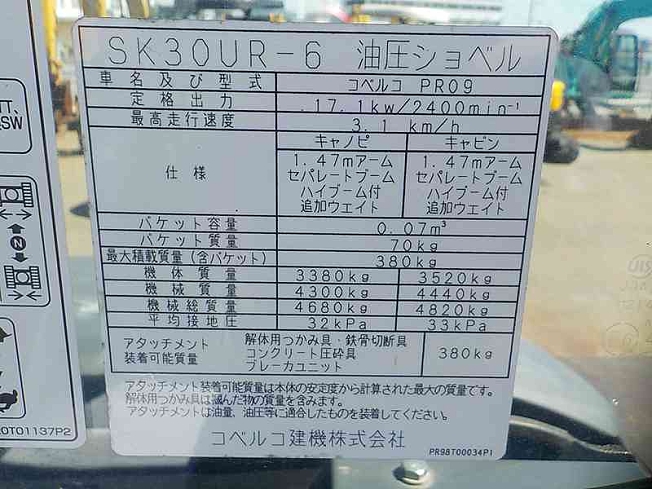 SK30UR-6 油圧ショベル
車名及び型式 コベルコ PR09
定格出力 17.1kw/2400min⁻¹
最高走行速度 3.1 km/h
仕様 キャノピ キャビン
1.47mアーム 1.47mアーム
セパレートブーム セパレートブーム
ハイブーム付 ハイブーム付
追加ウエイト 追加ウエイト
バケット容量 0.07m³
バケット質量 70kg
最大積載質量(含バケット) 380kg
機体質量 3380kg 3520kg
機械質量 4300kg 4440kg
機械総質量 4680kg 4820kg
平均接地圧 32kPa 33kPa
アタッチメント 装着可能質量
解体用つかみ具・鉄骨切断具
コンクリート圧砕具
ブレーカユニット
380kg
アタッチメント装着可能質量は本体の安定度から計算された最大の質量です。
解体用つかみ具は掴んだ物の質量を含みます。
アタッチメントは油量、油圧等に適合したものを装着してください。
コベルコ建機株式会社
PR98T00034P1
TT,
SW
N
0T01137P2